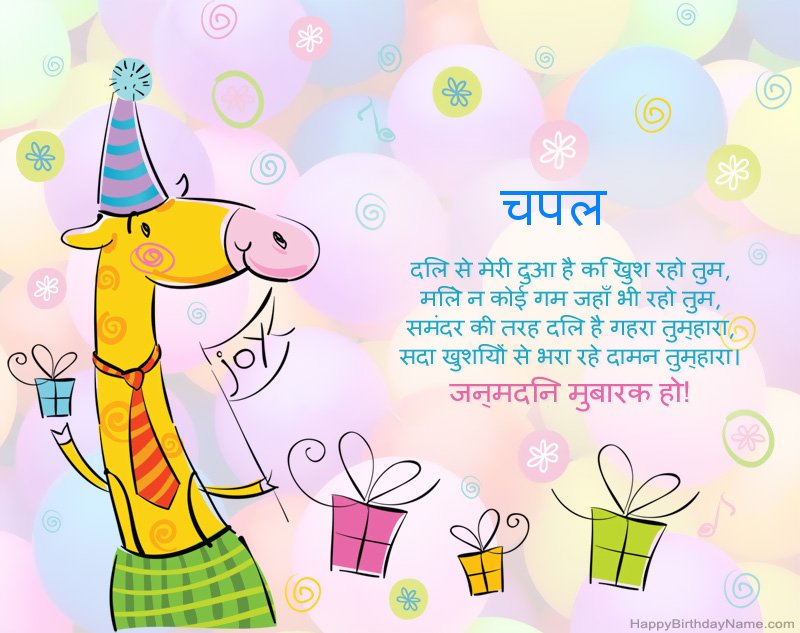 चपल
दलि से मेरी दुआ है क िखुश रहो तुम,
मलिे न कोई गम जहाँ भी रहो तुम,
समंदर की तरह दलि है गहरा तुम्हारा,
सदा खुशयिों से भरा रहे दामन तुम्हारा।
जन्मदनि मुबारक हो!
joy
HappyBirthdayName.com